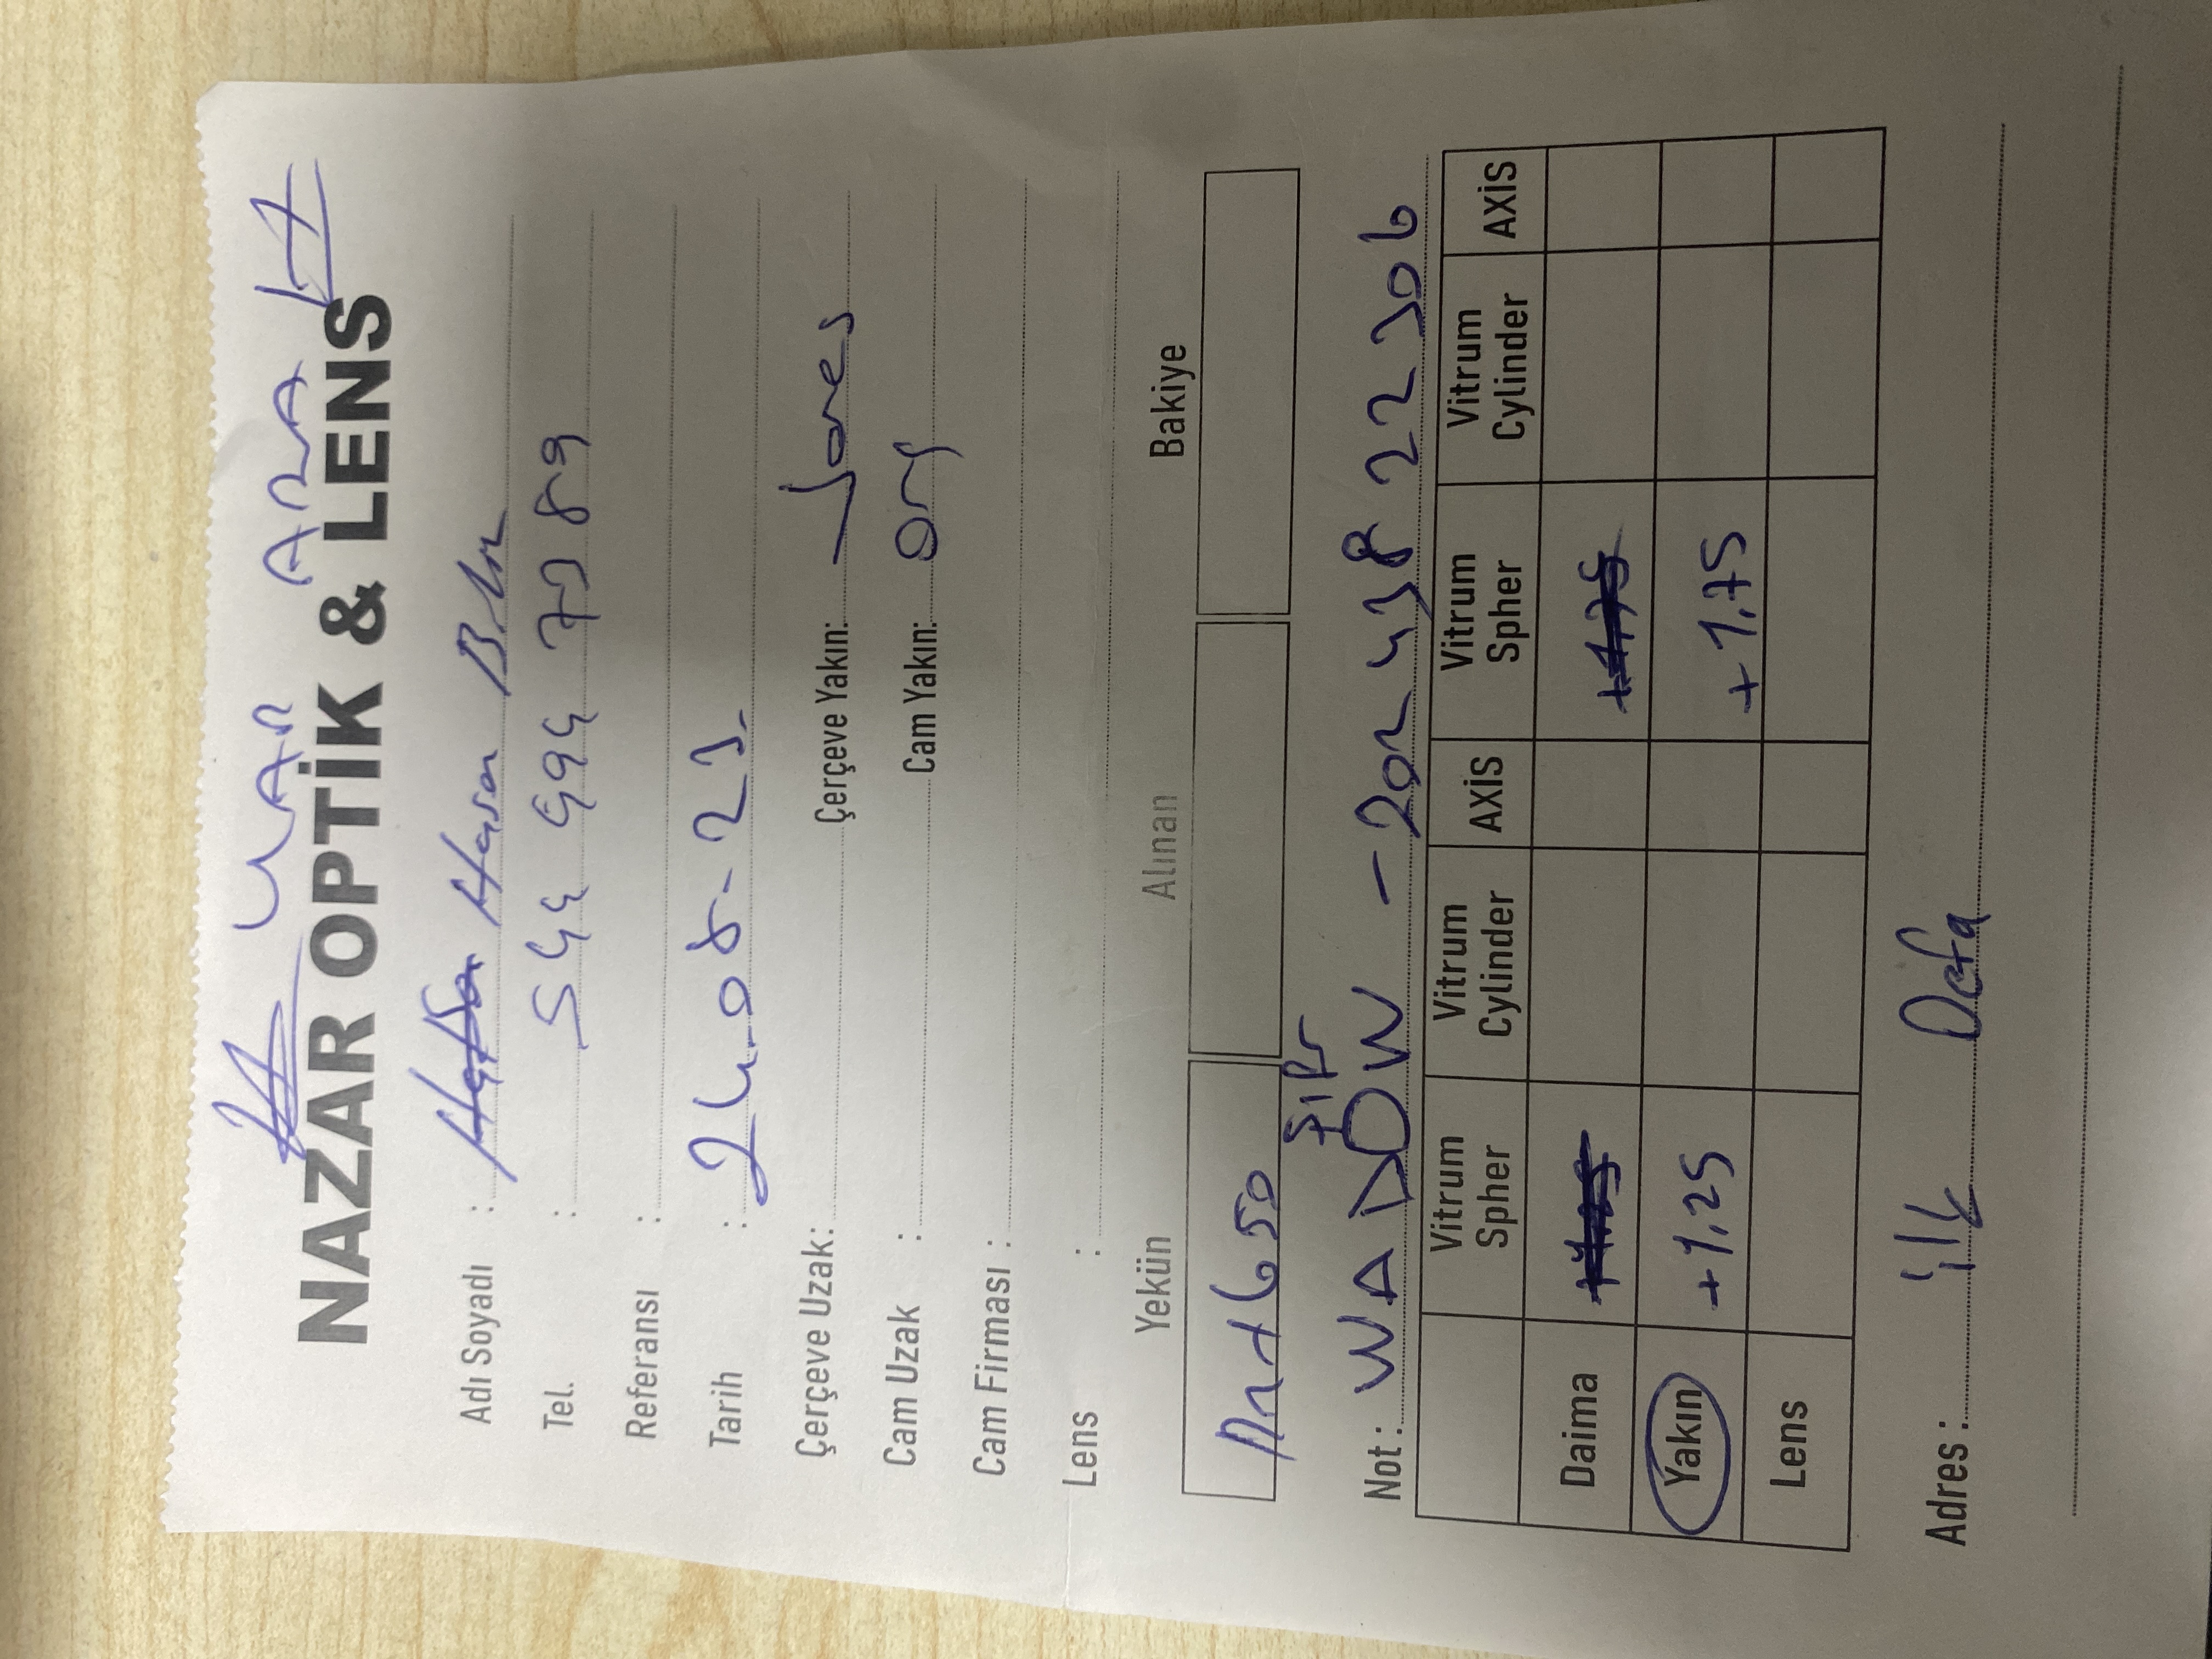 UAR ARA
NAZAR OPTİK & LENS
Adı Soyadı : Hasan
Tel. : 544 494 7389
Referansı :
Tarih : 24.08-23.
Çerçeve Uzak: Çerçeve Yakın: Jones
Cam Uzak : Cam Yakın: org
Cam Firması :
Lens :
Yekün Alınan Bakiye
+650
Not: WADOW -202 438 22 306
Vitrum Spher Vitrum Cylinder AXİS Vitrum Spher Vitrum Cylinder AXİS
Daima +1.25 +1,75
Yakın +1,25 +1,75
Lens
Adres : ilk Defa